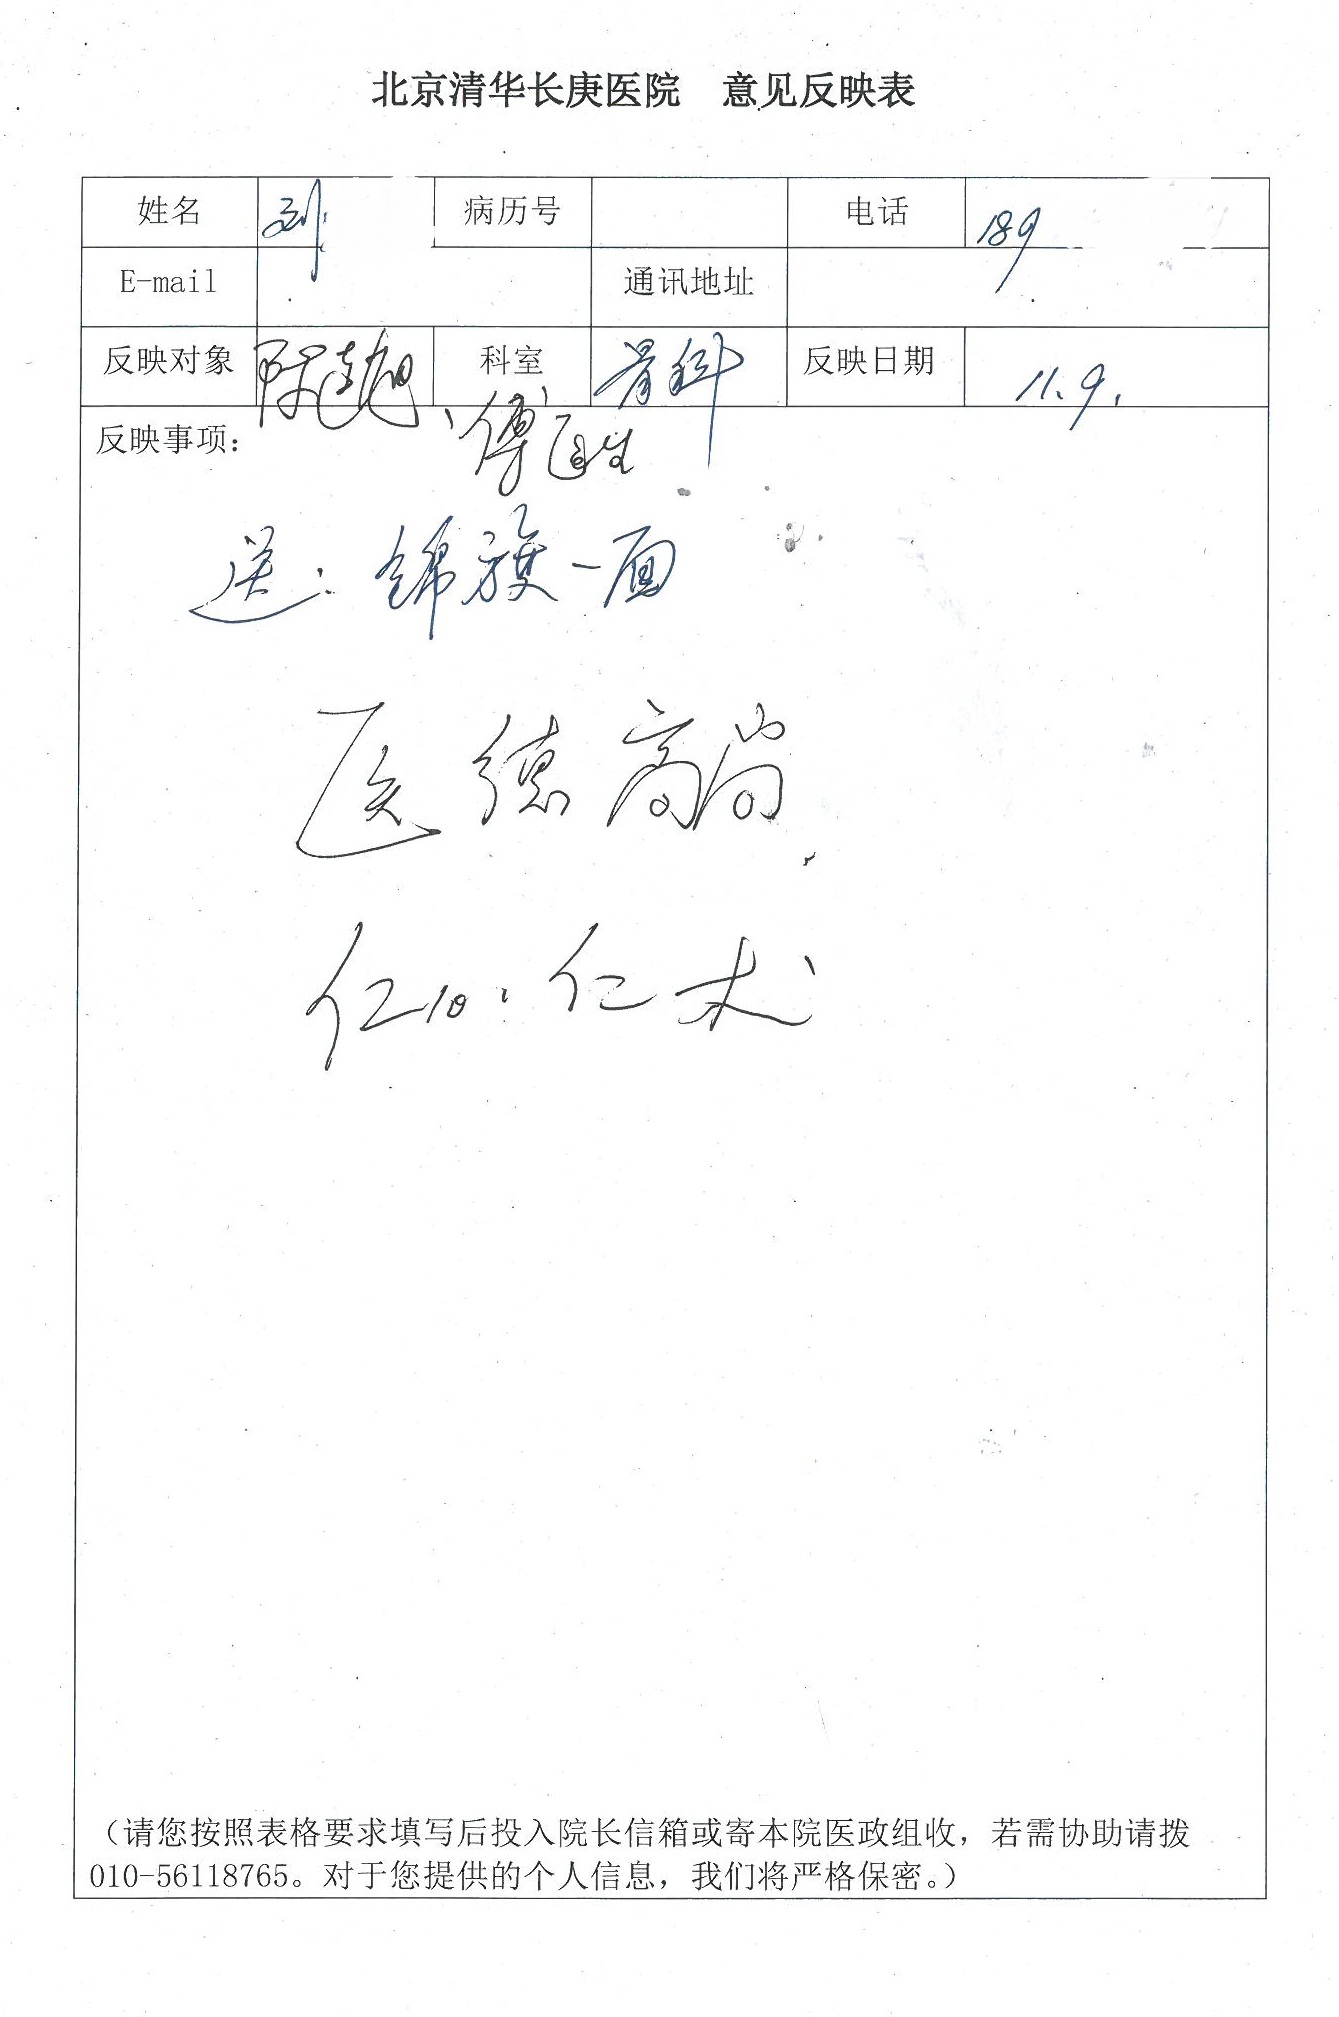 北京清华长庚医院 意见反映表
姓名 刘 病历号 电话 189
E-mail 通讯地址
反映对象 陈 旭、傅医生 科室 骨科 反映日期 11.9.
反映事项：
送：锦旗一面
医德高尚
仁心仁术
（请您按照表格要求填写后投入院长信箱或寄本院医政组收，若需协助请拨
010-56118765。对于您提供的个人信息，我们将严格保密。）